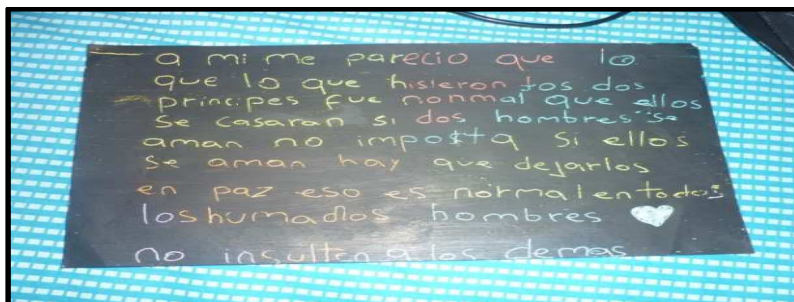 a mi me parecio que lo
que lo que hisieron tos dos
principes fue nonmal que ellos
se casaran si dos hombres se
aman no imposta si ellos
se aman hay que dejarlos
en paz eso es normal en todos
los humados hombres
no insulten a los demas